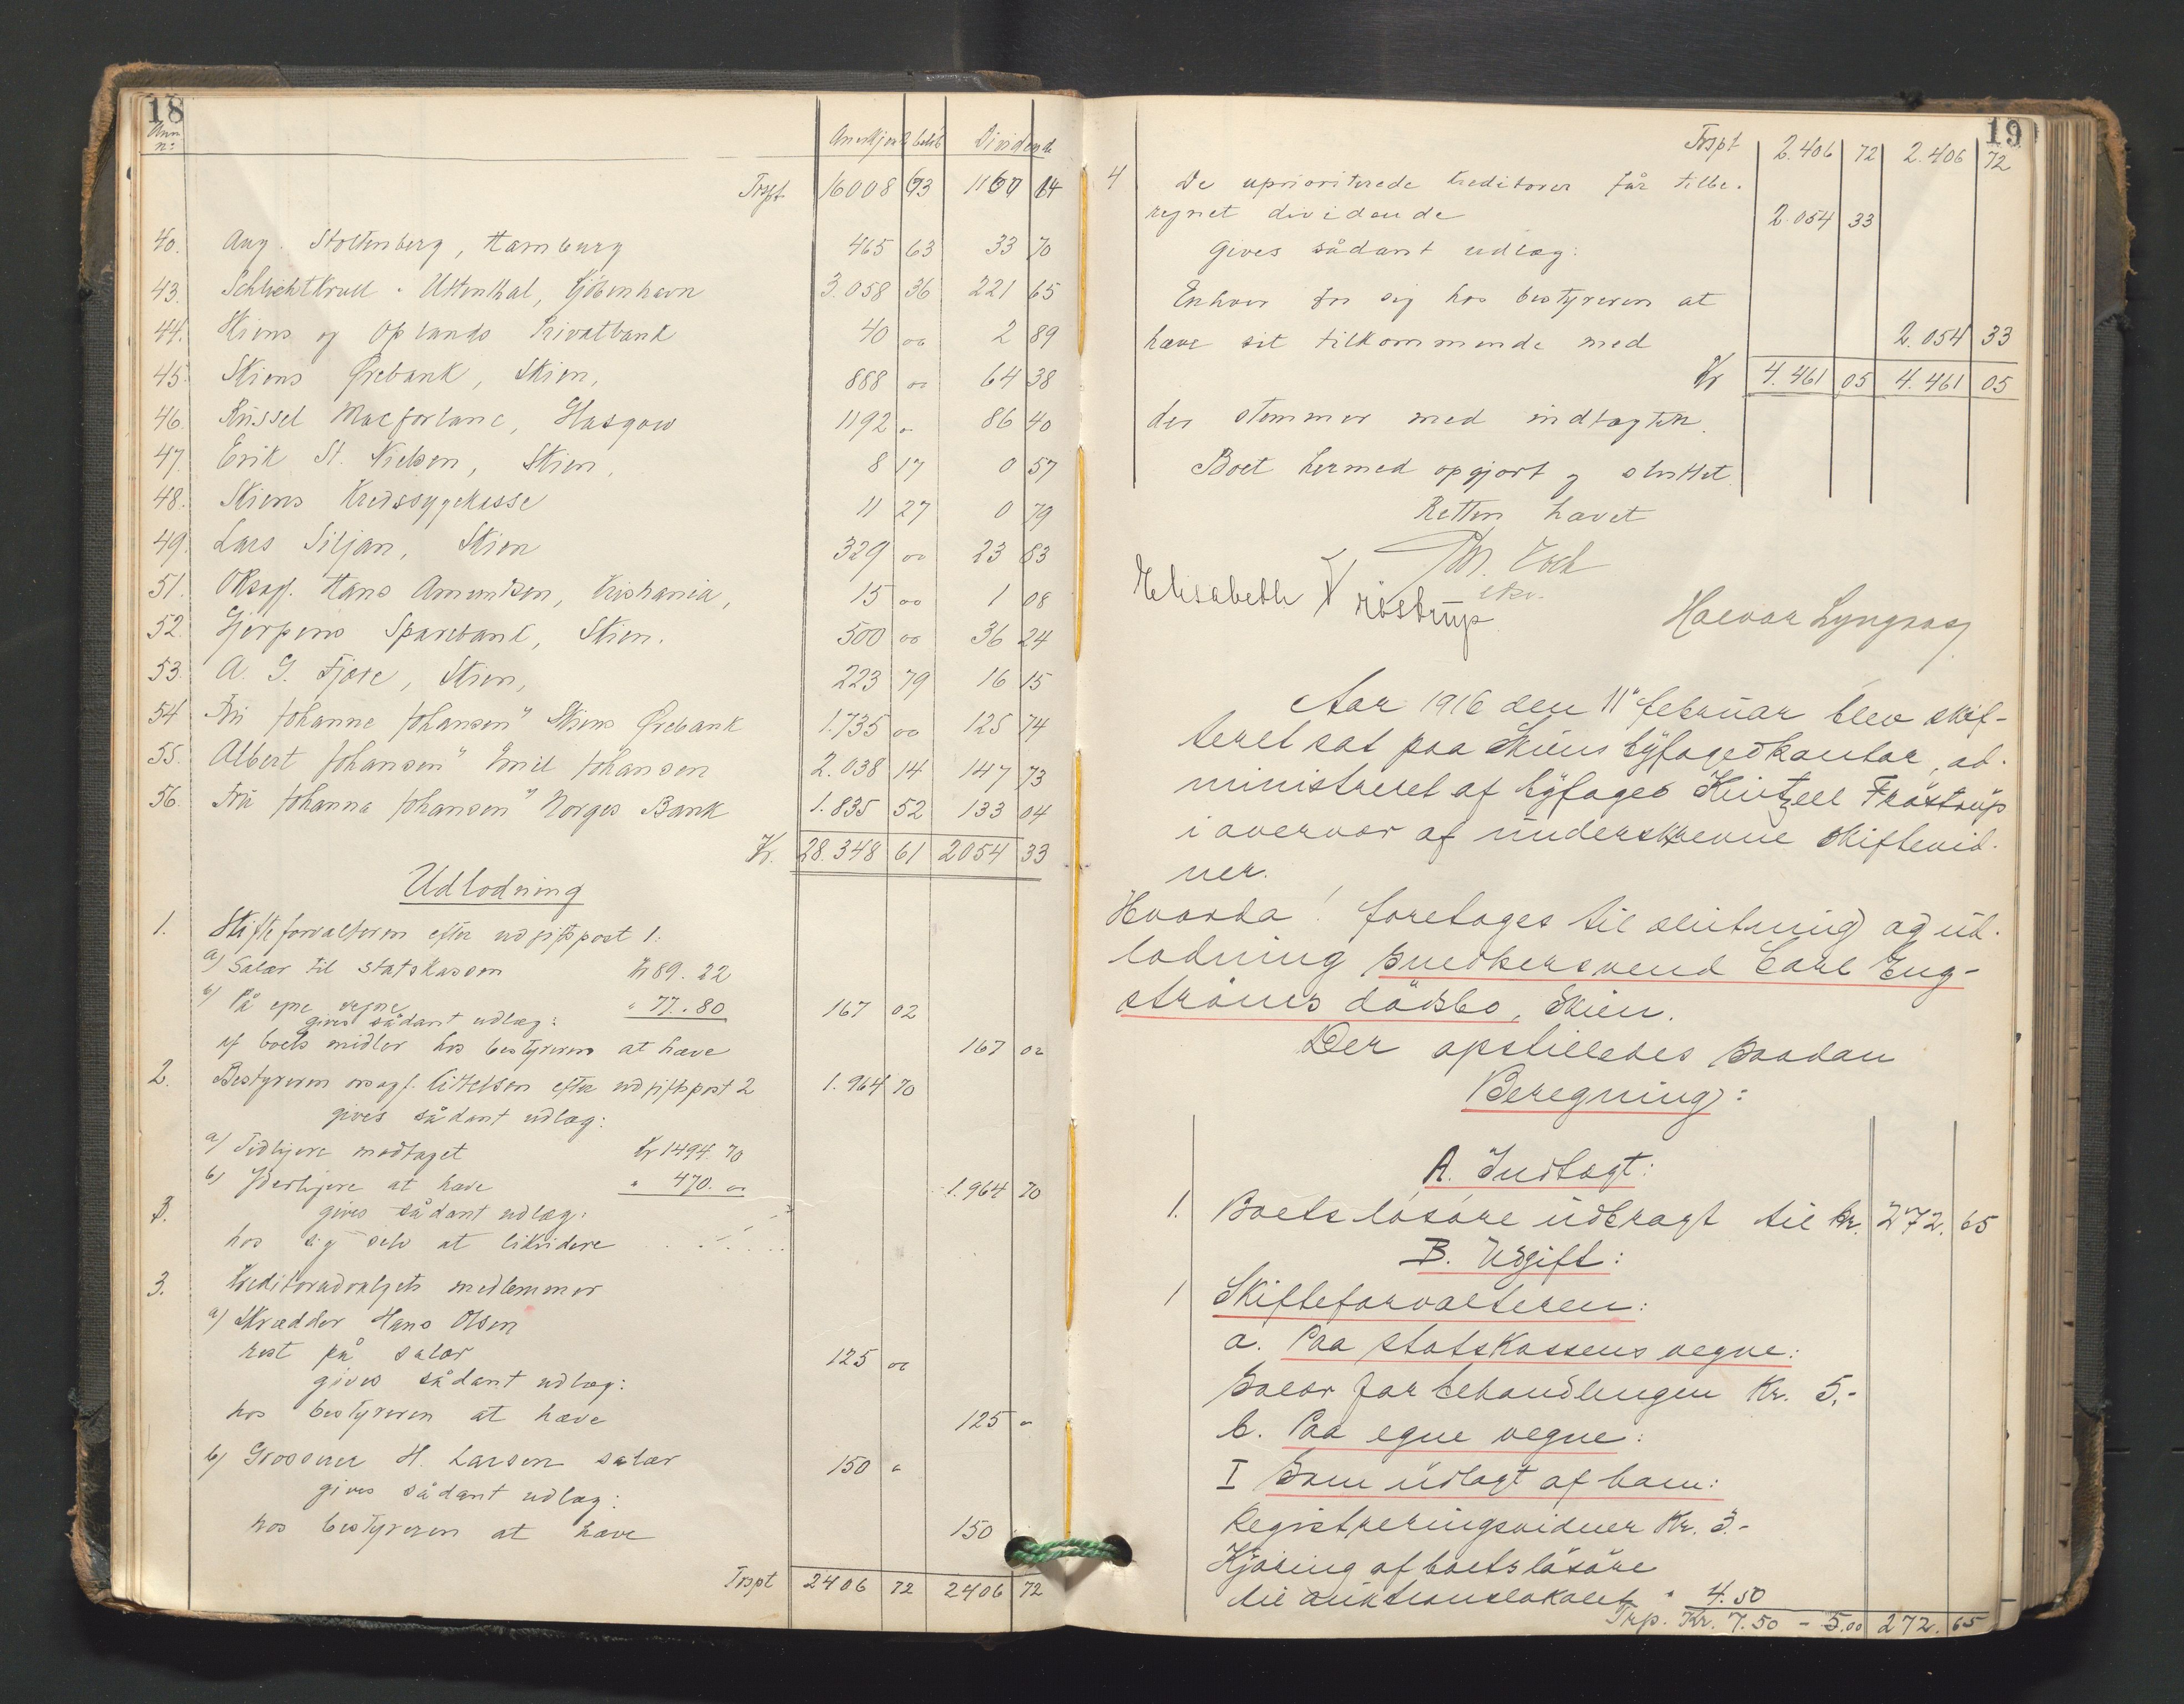 18
Anm
n:
Anerkjendt beløb Dividende
Trspt 16008 93 1160 14
40. Aug. Stoltenberg, Hamburg 465 63 33 70
43. Schlichtkrull · Uttenthal, Kjøbenhavn 3.058 36 221 65
44. Skiens og Oplands Privatbank 40 00 2 89
45. Skiens Ørebank, Skien, 888 00 64 38
46. Russel Macforlane, Glasgow 1192 " 86 40
47. Erik St. Nielsen, Skien, 8 17 0 57
48. Skiens Kredssygekasse 11 27 0 79
49. Lars Siljan, Skien 329 00 23 83
51. ORsagf. Hans Amundsen, Kristiania, 15 00 1 08
52. Gjerpens Sparebank, Skien. 500 00 36 24
53. A. G. Fjære, Skien, 223 79 16 15
54. Fru Johanne Johansen" Skiens Ørebank 1.735 00 125 74
55. Albert Johansen" Emil Johansen 2.038 14 147 73
56. Fru Johanna Johansen" Norges Bank 1.835 52 133 04
Kr. 28.348 61 2054 33
Udlodning
1. Skifteforvalteren efter udgiftspost 1:
a) Salær til statskassen Kr 89.22
b) På egne vegne " 77.80 167 02
gives sådant udlæg:
af boets midler hos bestyreren at hæve 167 02
2. Bestyreren orsagf. Cittelsen efter udgiftspost 2 1.964 70
gives sådant udlæg:
a) Tidligere modtaget Kr 1494.70
b) Yderligere at hæve " 470. 00 1.964 70
3. gives sådant udlæg:
hos sig selv at likvidere
3. Kreditorudvalgets medlemmer
a) Skrædder Hans Olsen
rest på salær 125 00
gives sådant udlæg:
hos bestyreren at hæve 125 "
b) Grosserer H. Larsen salær 150 "
gives sådant udlæg:
hos bestyreren at hæve 150
Trspt 2406 72 2406 72
19
Trspt 2.406 72 2.406 72
4 De uprioriterede kreditorer får tilbe-
regnet dividende 2.054 33
gives sådant udlæg:
Enhver for sig hos bestyreren at
hæve sit tilkommende med 2.054 33
Kr 4.461 05 4.461 05
der stemmer med indtægten.
Boet hermed opgjort og sluttet.
Retten hævet
Th. Koch
ekr.
Elisabeth Frøstrup
Halvor Lyngaas
Aar 1916 den 11te februar blev skif-
teret sat paa Skiens byfogedkontor, ad-
ministreret af byfoged Kintzell Frøstrup
i overvær af underskrevne skiftevid-
ner.
Hvorda! foretoges til slutning og ud-
lodning snedkersvend Carl Eng-
strøms dødsbo, Skien.
Der opstilledes saadan
Beregning:
A. Indtægt:
1. Boets løsøre udbragt til kr. 272. 65
B. Udgift:
1 Skifteforvalteren:
a. Paa statskassens vegne:
Salær for behandlingen Kr. 5,-
b. Paa egne vegne:
I Som udlagt af ham:
Registreringsvidner Kr. 3.-
Kjøring af boets løsøre
til auktionslokalet " 4.50
Trp. Kr. 7.50 - 5.00 272. 65